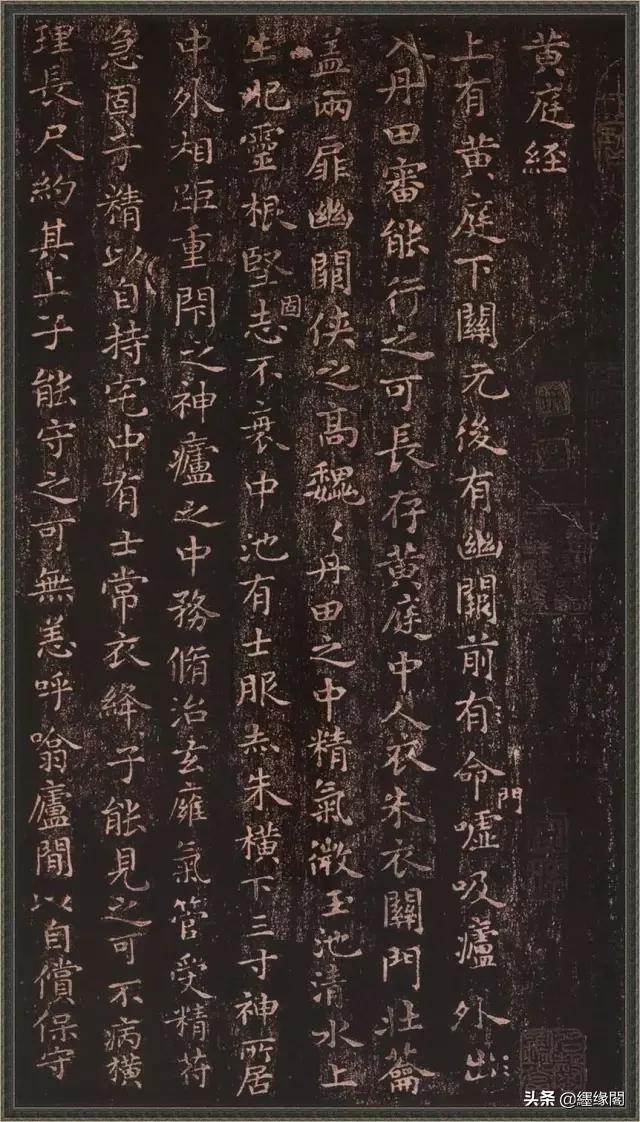 黄庭經
上有黄庭下關元後有幽闕前有命門噓吸廬外出
入丹田審能行之可長存黄庭中人衣朱衣關門壯籥
盖兩扉幽闕俠之高魏〻丹田之中精氣微玉池清水上
生肥靈根堅志固不衰中池有士服赤朱橫下三寸神所居
中外相距重閇之神廬之中務脩治玄癕氣管受精符
急固子精以自持宅中有士常衣絳子能見之可不病橫
理長尺約其上子能守之可無恙呼噏廬間以自償保守
头条 @纆缘閣